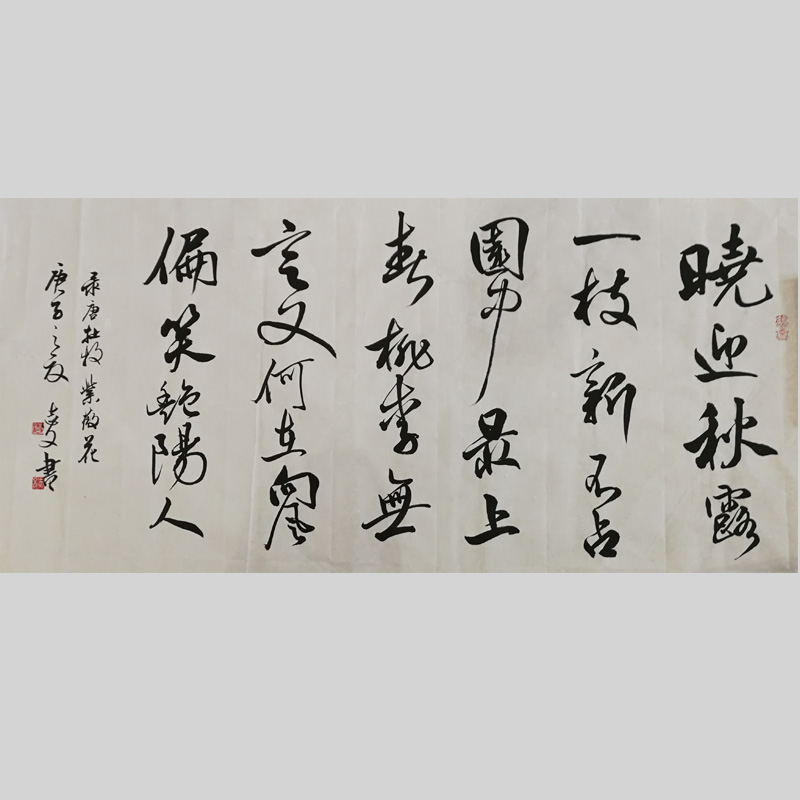 曉迎秋露
一枝新不占
園中最上
春桃李無
言又何在向風
偏笑艷陽人
录唐杜牧紫薇花
庚子之夏 書